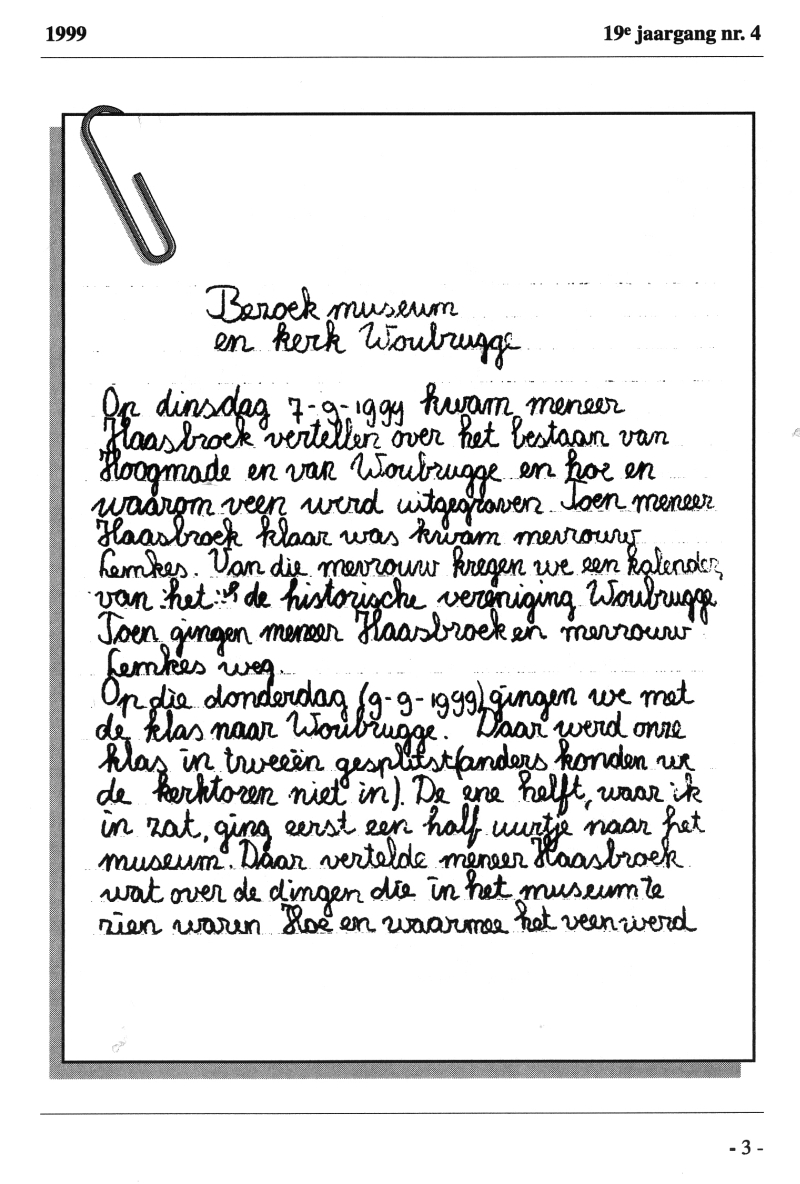 1999
19e jaargang nr. 4
Bezoek museum
en kerk Woubrugge
Op dinsdag 7-9-1999 kwam meneer
Haasbroek vertellen over het bestaan van
Hoogmade en van Woubrugge en hoe en
waarom veen werd uitgegraven. Toen meneer
Haasbroek klaar was kwam mevrouw
Lemkes. Van die mevrouw kregen we een kalender,
van het de historische vereniging Woubrugge
Toen gingen meneer Haasbroek en mevrouw
Lemkes weg.
Op die donderdag (9-9-1999) gingen we met
de klas naar Woubrugge. Daar werd onze
klas in tweeën gesplitst (anders konden we
de kerktoren niet in). De ene helft, waar ik
in zat, ging eerst een half uurtje naar het
museum. Daar vertelde meneer Haasbroek
wat over de dingen die in het museum te
zien waren Hoe en waarmee het veen werd
- 3 -